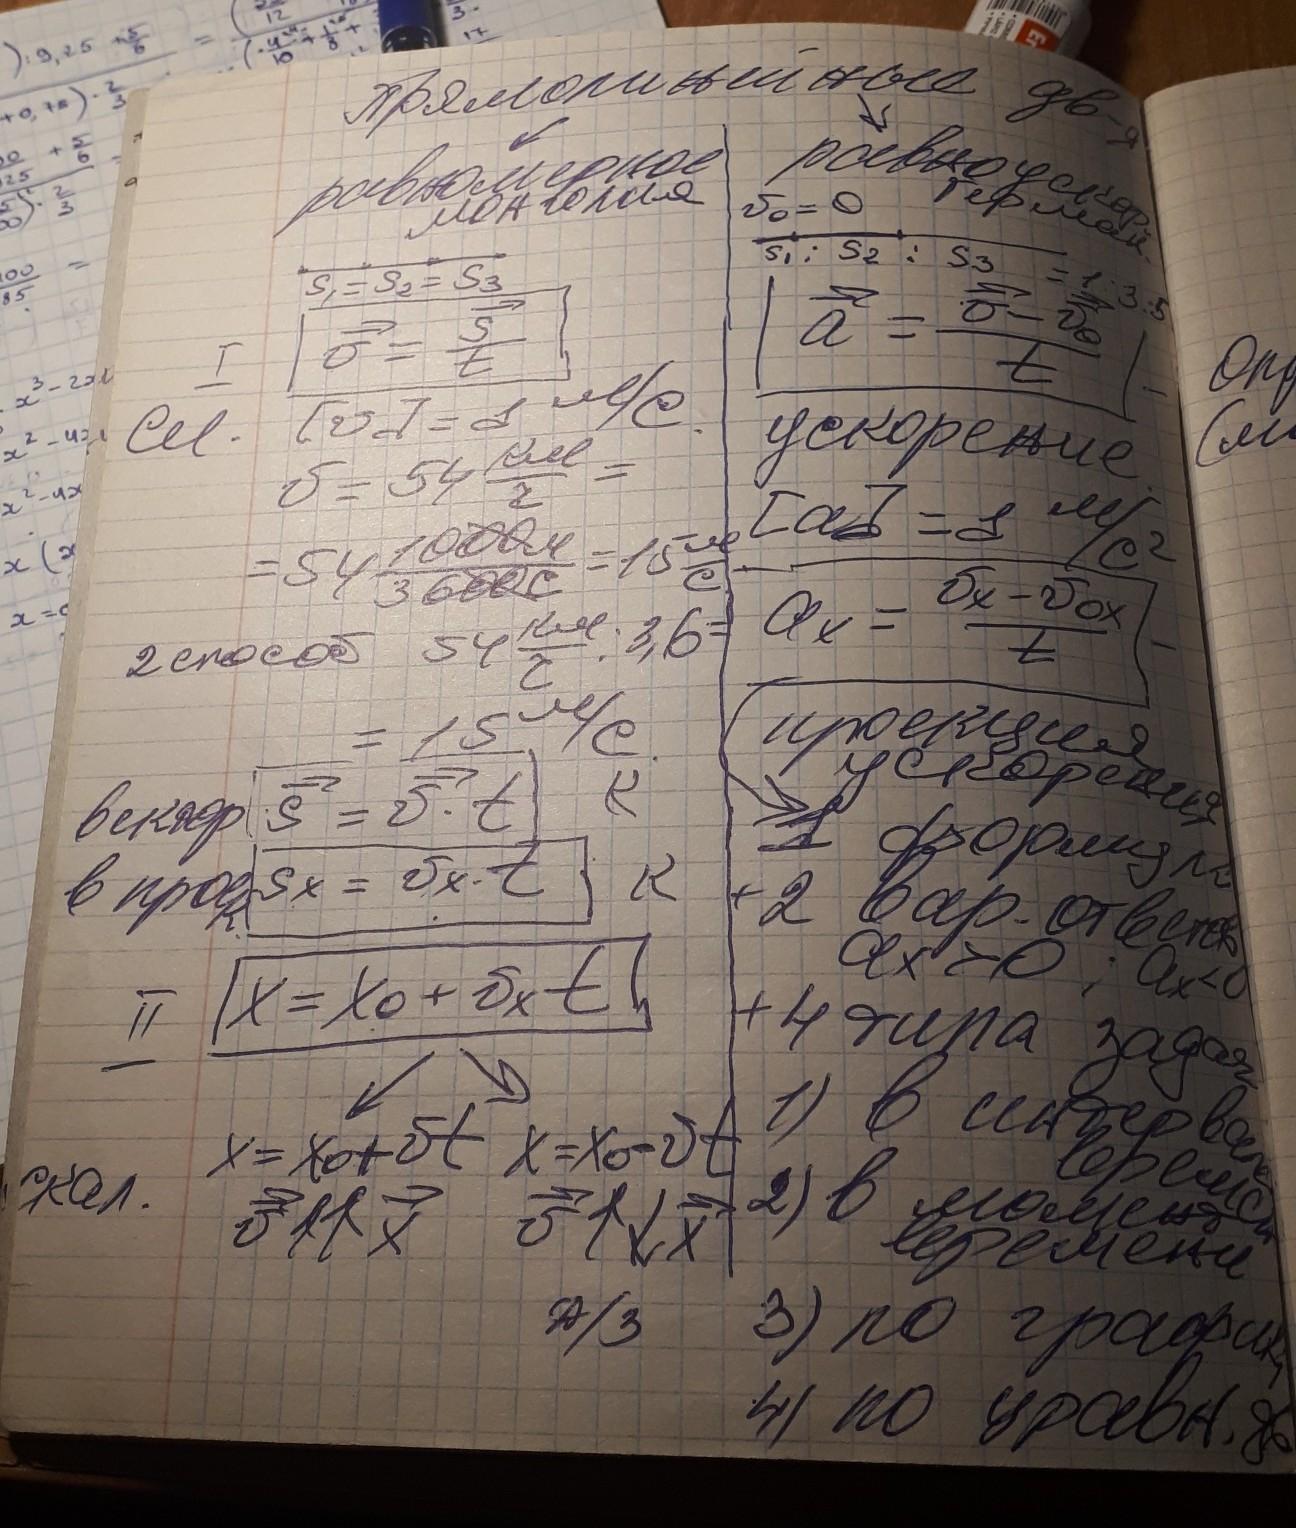 Прямолинейные дв-я
равномерное
монголия
S₁ = S₂ = S₃
I
v⃗ = s⃗/t
СИ. [v] = 1 м/с.
v = 54 км/г =
= 54 1000м/3600с = 15 м/с
2 способ 54 км/г : 3,6 =
= 15 м/с.
вектор s⃗ = v⃗ · t К
в проек. sx = vx · t К
II x = x₀ + vx t
x = x₀ + vt x = x₀ - vt
скал. v⃗ ↑↑ x⃗ v⃗ ↑↓ x⃗
Д/З
равноускор.
v₀ = 0
S₁ : S₂ : S₃ = 1 : 3 : 5
a⃗ = (v⃗ - v⃗₀)/t
ускорение.
[a] = 1 м/с²
ax = (vx - v₀x)/t
проекция
ускорения
1 формула
+ 2 вар. ответов
ax > 0 ; ax < 0
+ 4 типа задач
1) в интервале
времени
2) в момент
времени
3) по графику
4) по уравн. дв
): 9,25 + 5/6 =
x³ - 2x
x² - 4x
x² - 4x
x (x
x =
Опр
(м